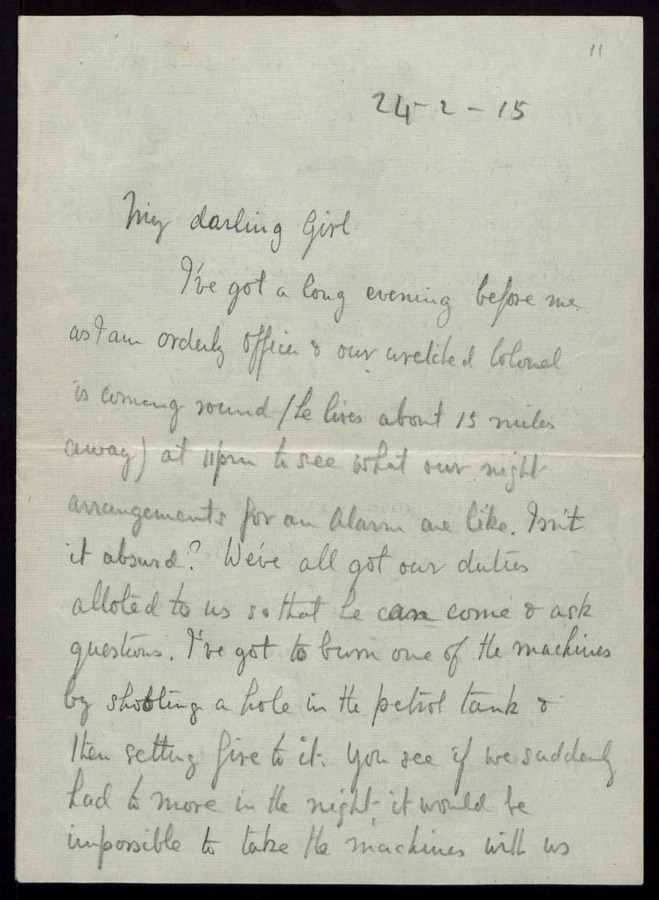 11
24-2-15
My darling Girl
I've got a long evening before me
as I am orderly officer & our wretched Colonel
is coming round (he lives about 15 miles
away) at 11pm to see what our night
arrangements for an Alarm are like. Isn't
it absurd? We've all got our duties
alloted to us so that he can come & ask
questions. I've got to burn one of the machines
by shooting a hole in the petrol tank &
then setting fire to it. You see if we suddenly
had to move in the night, it would be
impossible to take the machines with us